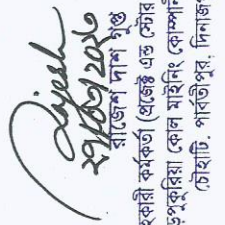 Rajesh
২৭/০৩/২০১৩
রাজেশ দাশ গুপ্ত
হকারী কর্মকর্তা (প্রজেক্ট এন্ড স্টোর
ড়পুকুরিয়া কোল মাইনিং কোম্পানী
চৌহাটি, পার্বতীপুর, দিনাজপ